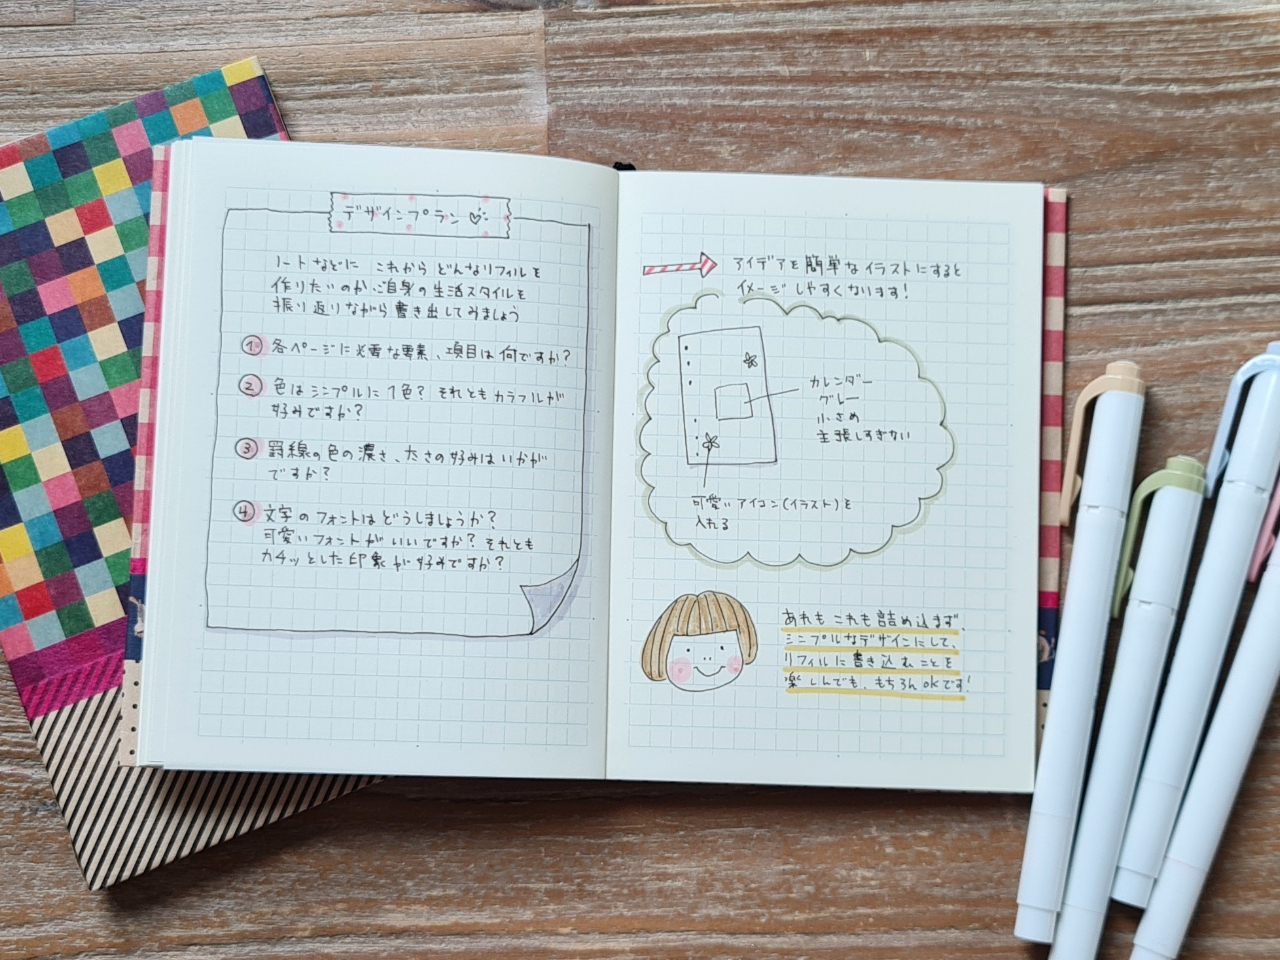 デザインプラン
ノートなどに これから どんなリフィルを
作りたいのか、ご自身の生活スタイルを
振り返りながら書き出してみましょう
① 各ページに必要な要素、項目は何ですか?
② 色はシンプルに1色? それともカラフルが
好みですか?
③ 罫線の色の濃さ、太さの好みはいかが
ですか?
④ 文字のフォントはどうしましょうか?
可愛いフォントがいいですか? それとも
カチッとした印象が好みですか?
アイデアを簡単なイラストにすると
イメージしやすくなります!
カレンダー
グレー
小さめ
主張しすぎない
可愛いアイコン(イラスト)を
入れる
あれもこれも詰め込まず、
シンプルなデザインにして、
リフィルに書き込むことを
楽しんでも、もちろんOKです!